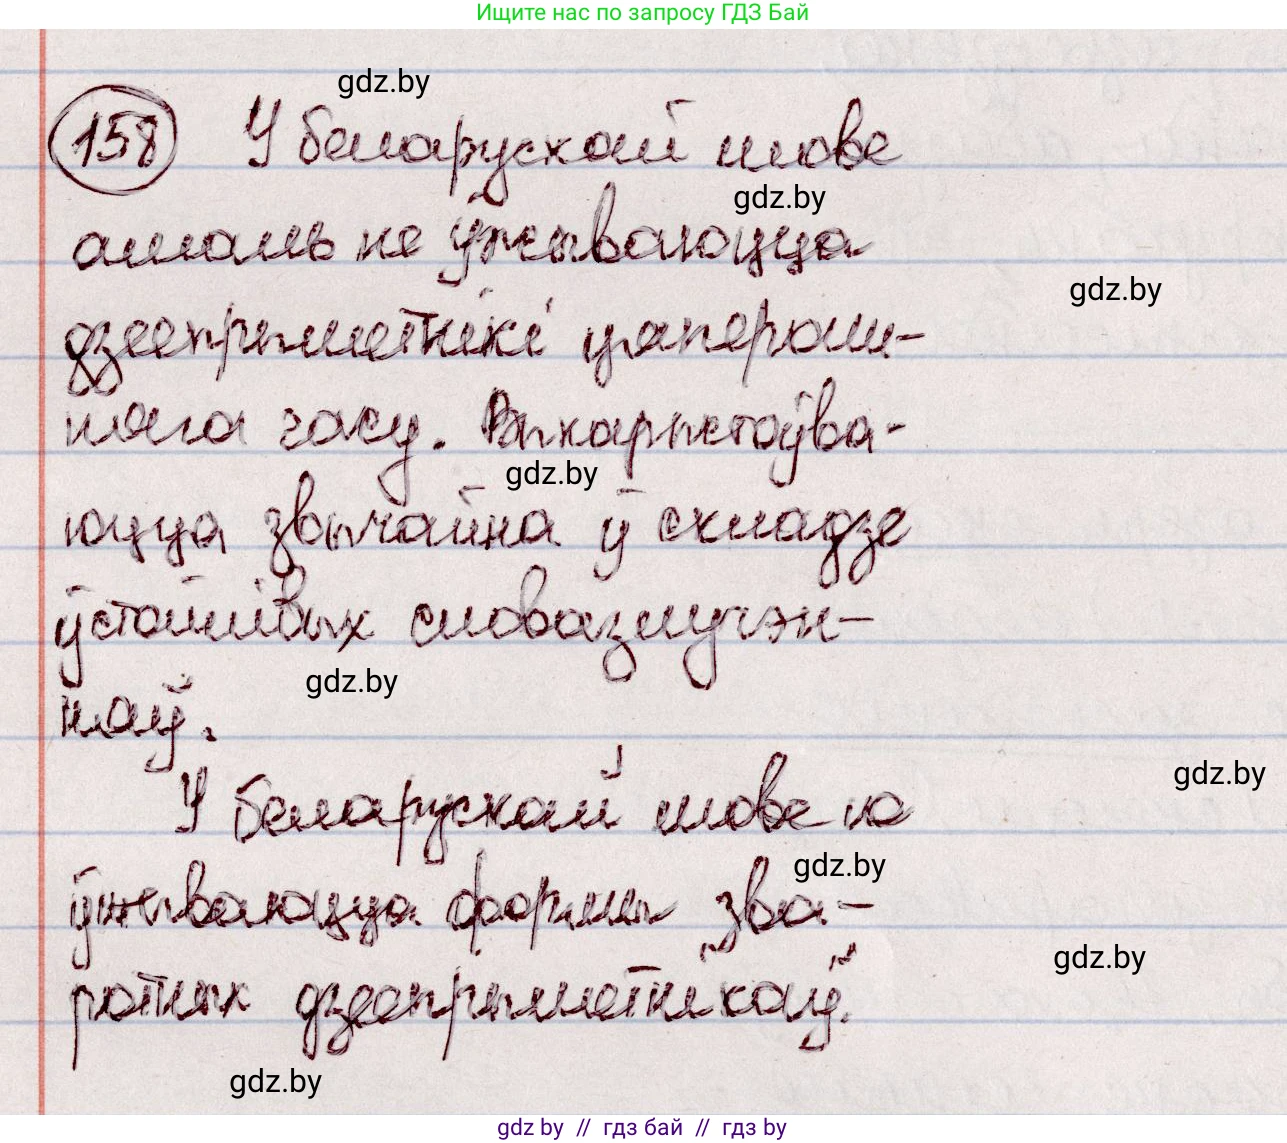 Ищите нас по запросу ГДЗ Бай
gdz.by
158 У беларускай мове
gdz.by
амаль не ўжываюцца
gdz.by
дзеепрыметнікі цяпераш-
няга часу. Выкарыстоўва-
gdz.by
юцца звычайна ў складзе
ўстойлівых словазлучэн-
gdz.by
няў.
gdz.by
У беларускай мове не
gdz.by
ўжываюцца формы зва-
gdz.by
ротных дзеепрыметнікаў.
gdz.by
gdz by // гдз бай // гдз by